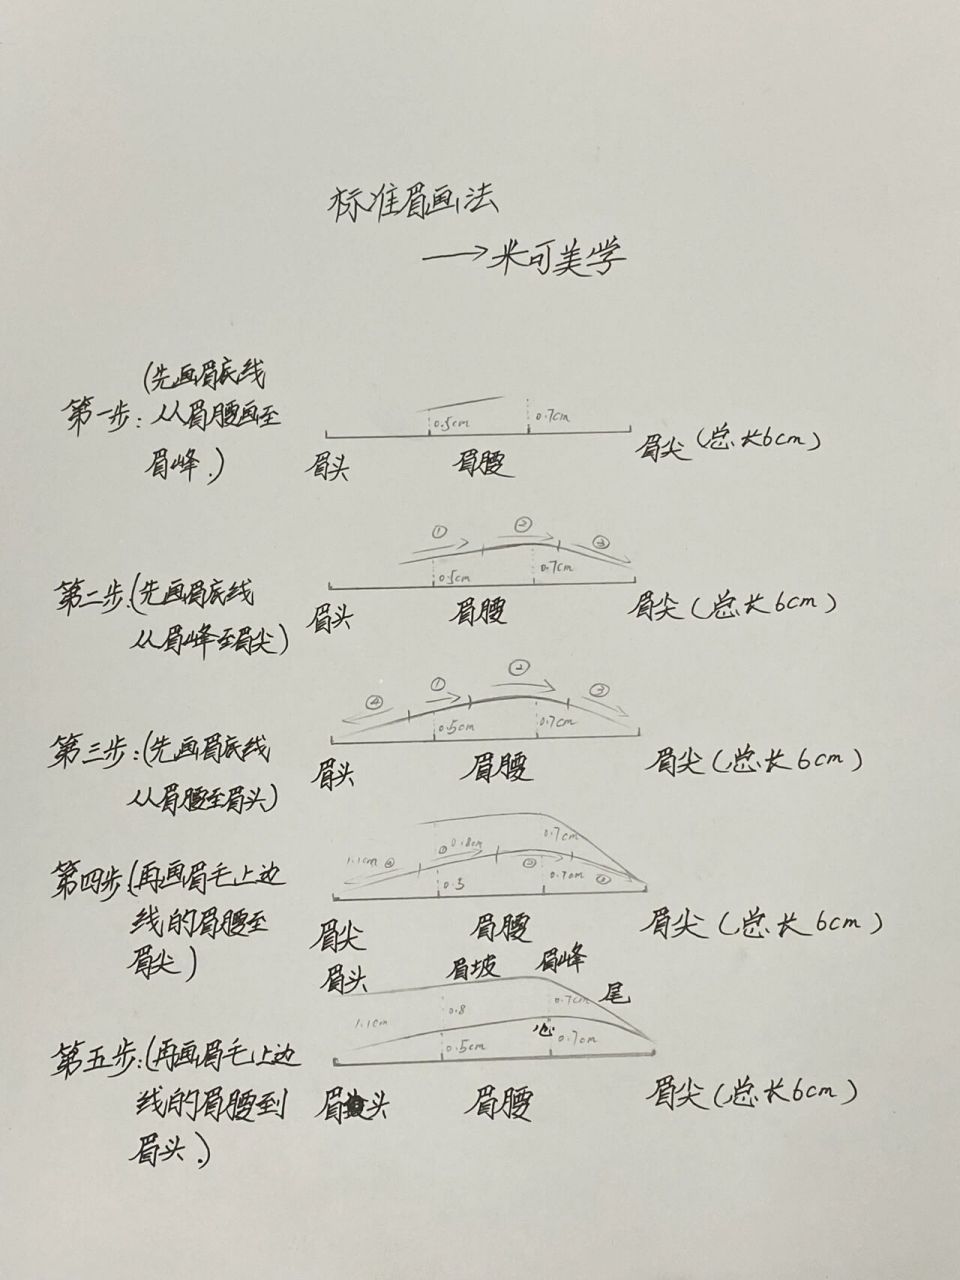 标准眉画法
→米可美学
(先画眉底线
第一步:从眉腰画至
眉峰.)
0.5cm 0.7cm
眉头 眉腰 眉尖(总长6cm)
① ② ③
第二步:(先画眉底线
从眉峰至眉尖)
0.5cm 0.7cm
眉头 眉腰 眉尖(总长6cm)
④ ① ② ③
第三步:(先画眉底线
从眉腰至眉头)
0.5cm 0.7cm
眉头 眉腰 眉尖(总长6cm)
第四步:(再画眉毛上边
线的眉腰至
眉尖)
1.1cm ④ ① 0.8cm 0.7cm
0.5 0.7cm
眉尖 眉腰 眉尖(总长6cm)
眉头 眉坡 眉峰
尾
1.1cm 0.8 0.7cm
心
0.5cm 0.7cm
第五步:(再画眉毛上边
线的眉腰到
眉头.)
眉头 眉腰 眉尖(总长6cm)